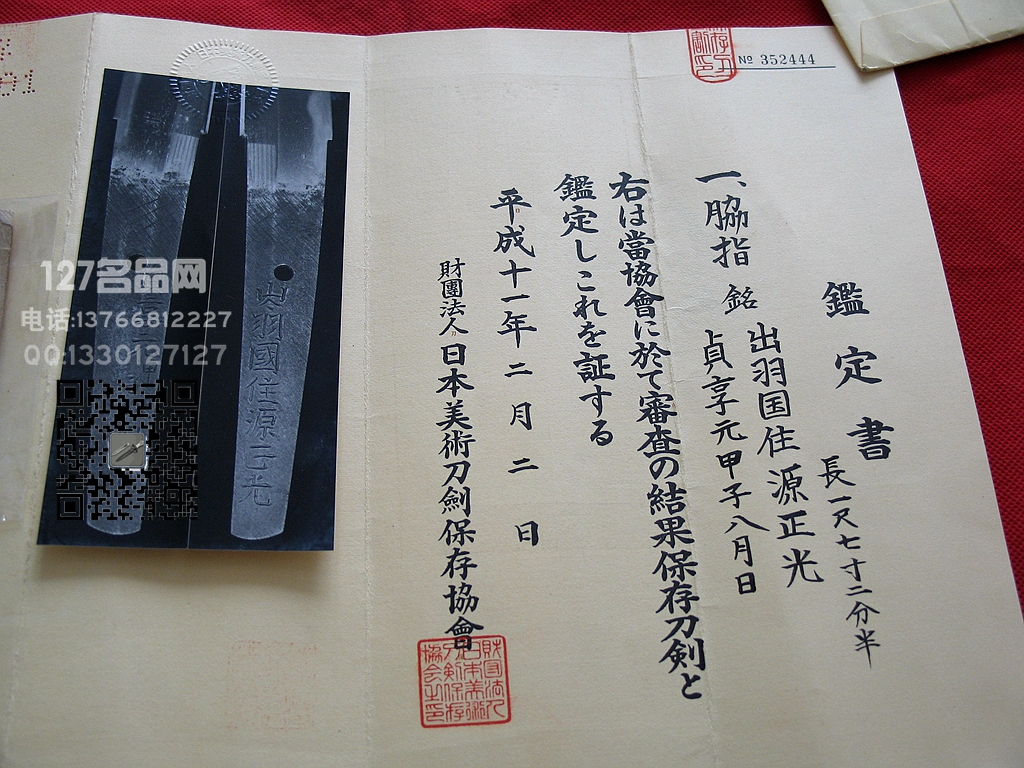 № 352444
鑑定書
一、脇指 銘 出羽国住源正光
貞享元甲子八月日
長一尺七寸二分半
右は當協會に於て審査の結果保存刀剣と
鑑定しこれを証する
平成十一年二月二日
財團法人日本美術刀劍保存協會
財団法人日本美術刀剣保存協会之印
出羽國住源正光
127名品网
电话:13766812227
QQ:1330127127